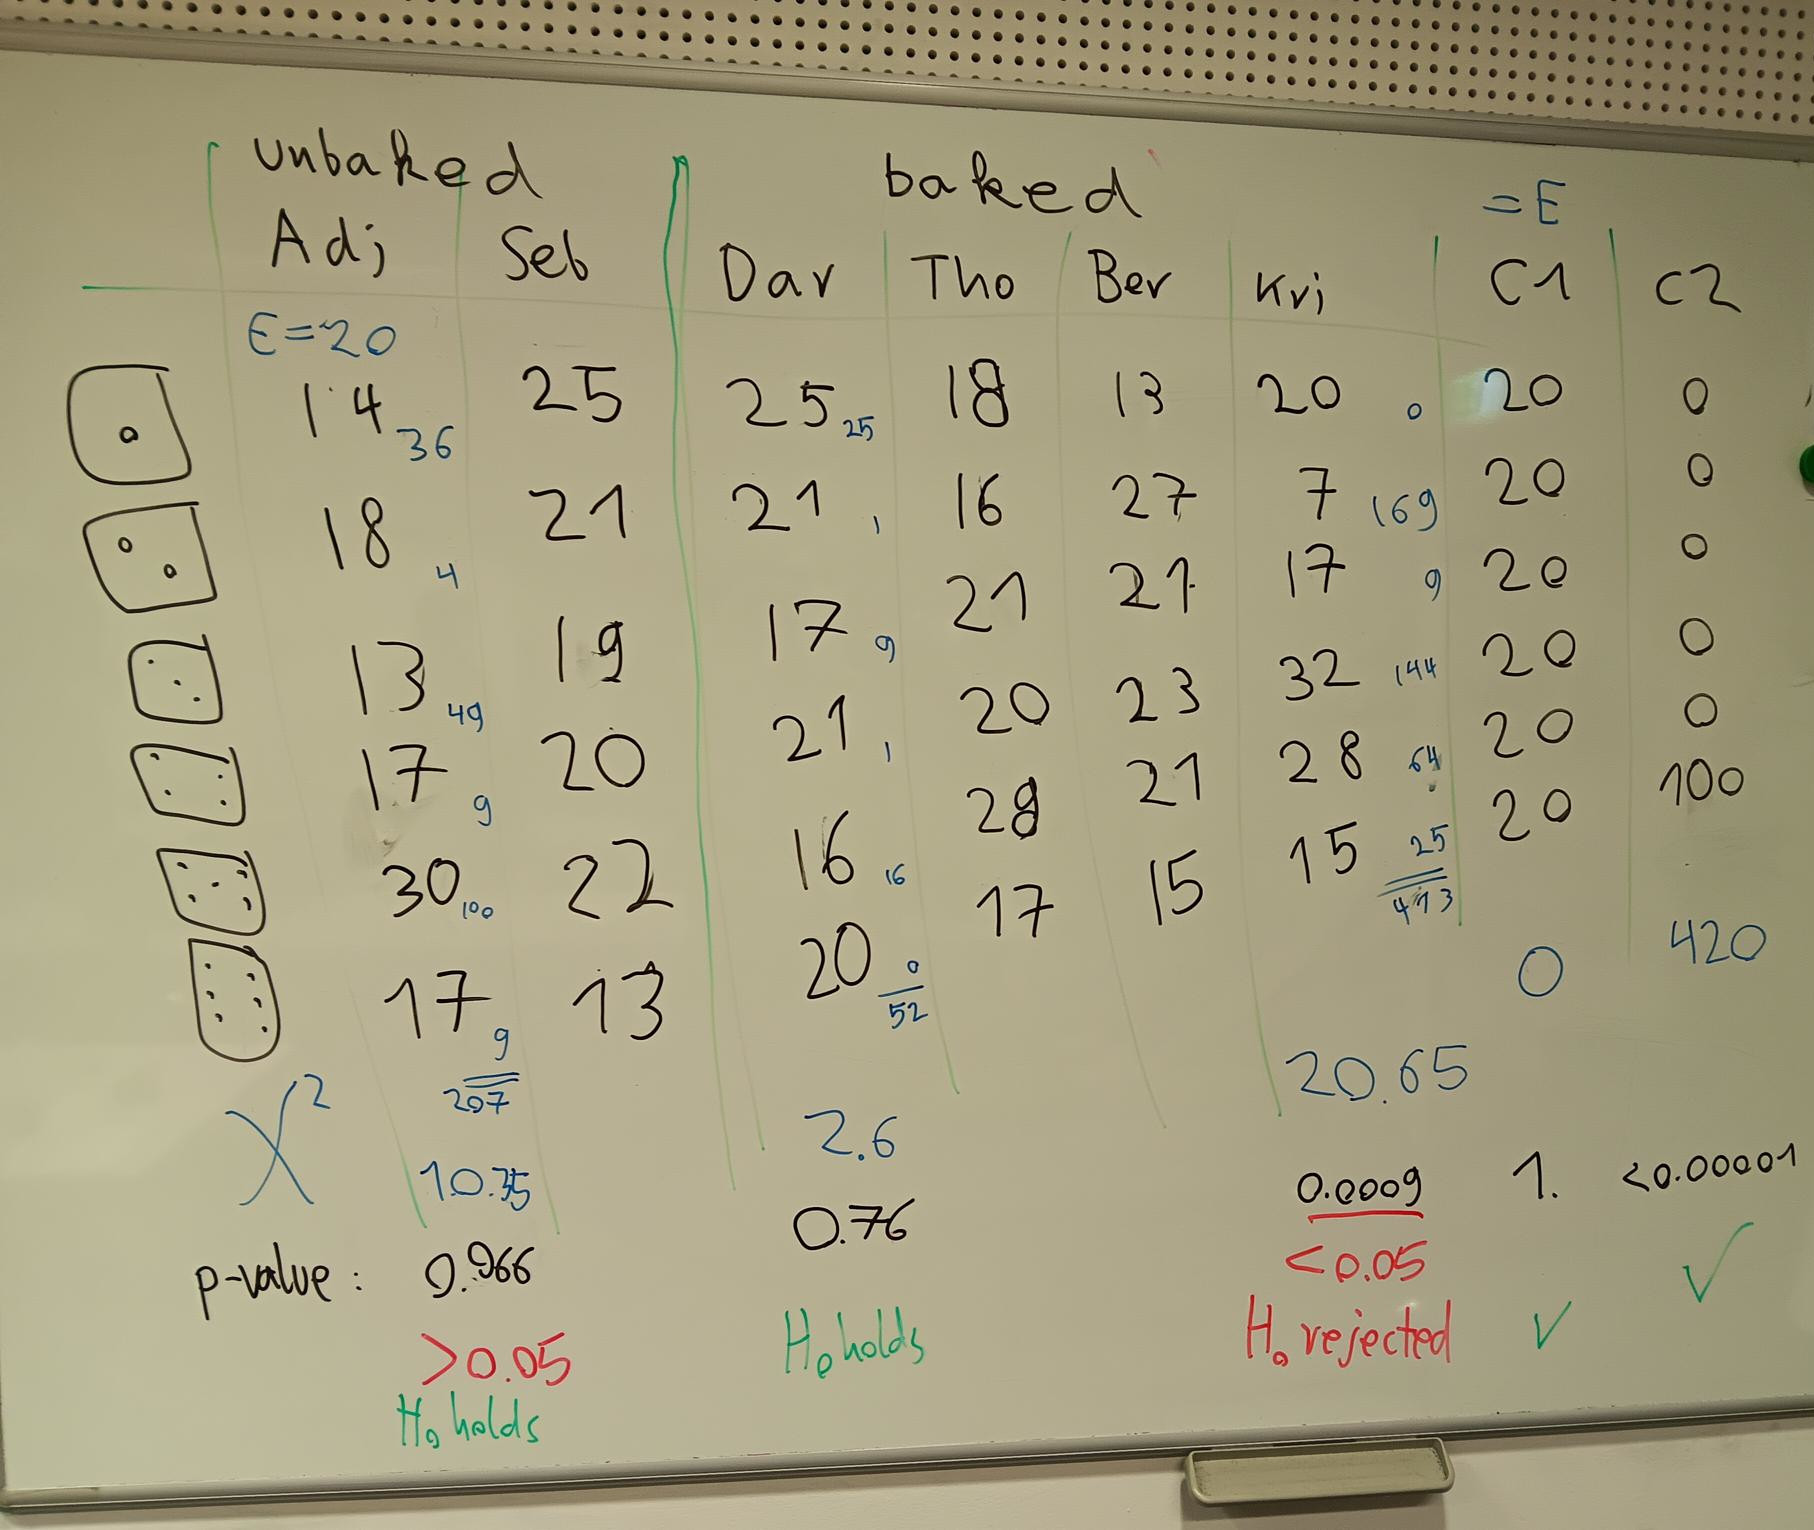 unbaked baked =E
Adj Seb Dar Tho Ber Kri C1 C2
E=20
14 36 25 25 25 18 13 20 0 20 0
18 4 21 21 1 16 27 7 169 20 0
13 49 19 17 9 21 21 17 9 20 0
17 9 20 21 1 20 23 32 144 20 0
30 100 22 16 16 28 21 28 64 20 0
17 9 13 20 0 17 15 15 25 20 100
207 52 413 0 420
X² 10.35 2.6 20.65
p-value: 0.066 0.76 0.0009 1. <0.00001
>0.05 H₀ holds <0.05 ✓ ✓
H₀ holds H₀ rejected